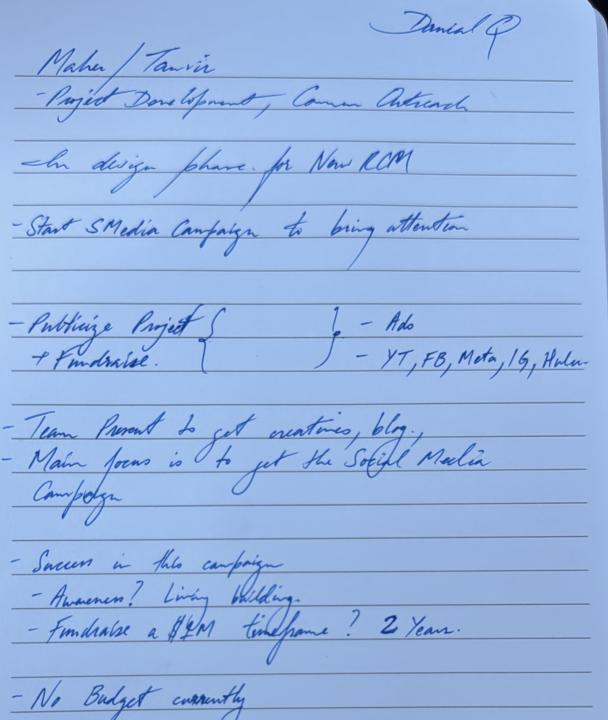 Danial Q
Maher / Tanvir
- Project Development, Comm Outreach
- In design phase. for New RCM
- Start SMedia Campaign to bring attention
- Publicize Project { } - Ads
+ Fundraise. - YT, FB, Meta, IG, Hulu
- Team Present to get creatives, blog.,
- Main focus is to get the Social Media
Campaign
- Success in this campaign
- Awareness? Living building.
- Fundraise a $1M timeframe? 2 Years.
- No Budget currently